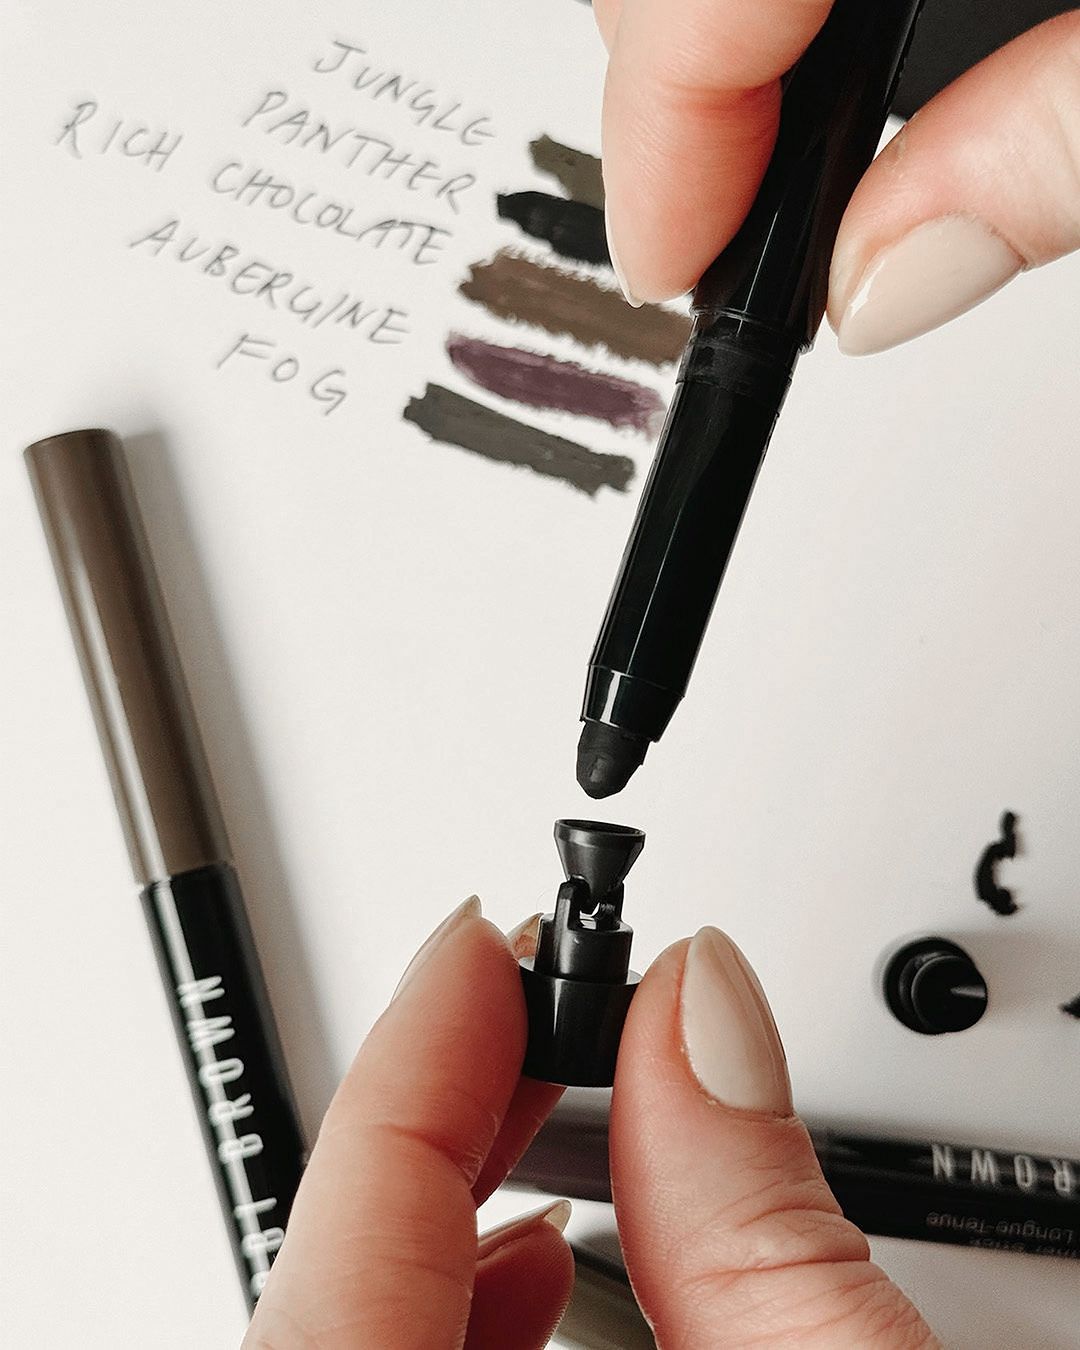 JUNGLE
PANTHER
RICH CHOCOLATE
AUBERGINE
FOG
BROWN
BROWN
Longue-Tenue